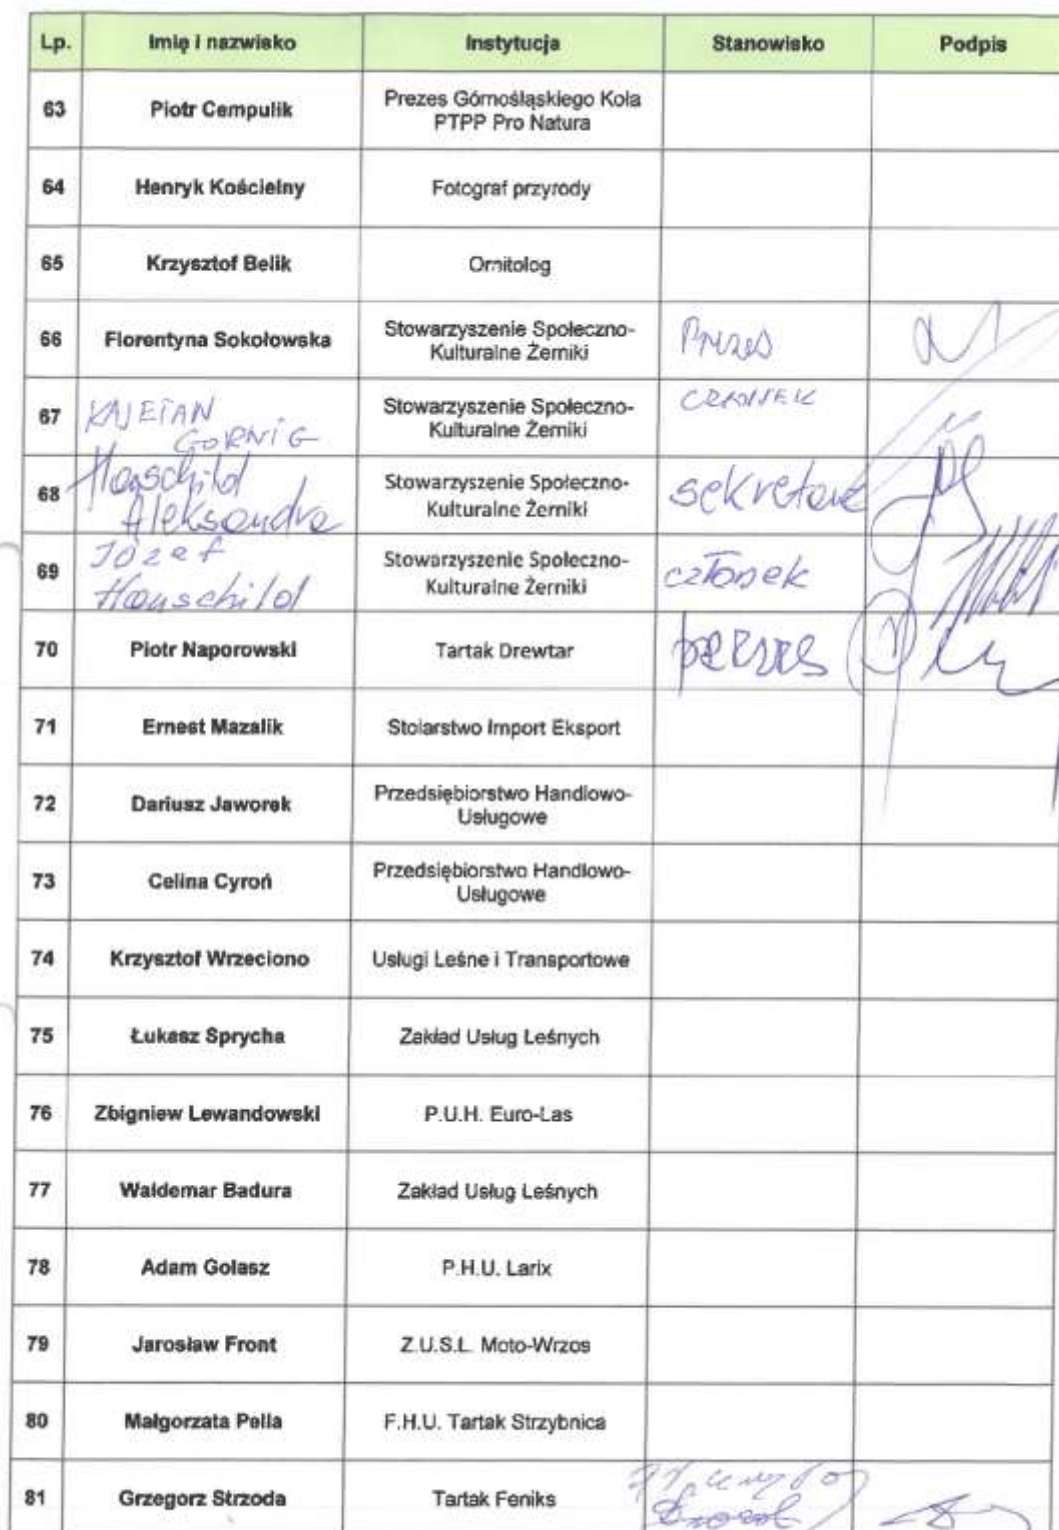 Lp. Imię i nazwisko Instytucja Stanowisko Podpis
63 Piotr Cempulik Prezes Górnośląskiego Koła
PTPP Pro Natura
64 Henryk Kościelny Fotograf przyrody
65 Krzysztof Belik Ornitolog
66 Florentyna Sokołowska Stowarzyszenie Społeczno-
Kulturalne Żerniki Prezes
67 KAJETAN
GORNIG Stowarzyszenie Społeczno-
Kulturalne Żerniki CZŁONEK
68 Hauschild
Aleksandra Stowarzyszenie Społeczno-
Kulturalne Żerniki sekretarz
69 Józef
Hauschild Stowarzyszenie Społeczno-
Kulturalne Żerniki członek
70 Piotr Naporowski Tartak Drewtar prezes
71 Ernest Mazalik Stolarstwo Import Eksport
72 Dariusz Jaworek Przedsiębiorstwo Handlowo-
Usługowe
73 Celina Cyroń Przedsiębiorstwo Handlowo-
Usługowe
74 Krzysztof Wrzeciono Usługi Leśne i Transportowe
75 Łukasz Sprycha Zakład Usług Leśnych
76 Zbigniew Lewandowski P.U.H. Euro-Las
77 Waldemar Badura Zakład Usług Leśnych
78 Adam Golasz P.H.U. Larix
79 Jarosław Front Z.U.S.L. Moto-Wrzos
80 Małgorzata Pella F.H.U. Tartak Strzybnica
81 Grzegorz Strzoda Tartak Feniks